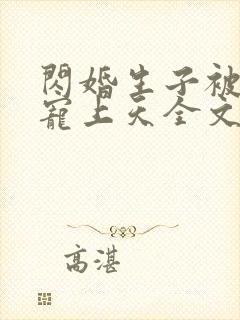 閃婚生子被
寵上天全文
高湛